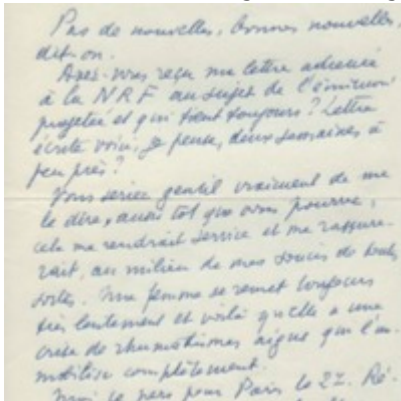 Pas de nouvelles, bonnes nouvelles,
dit-on.
Avez-vous reçu ma lettre adressée
à la NRF au sujet de l'émission
projetée et qui tient toujours ? Lettre
écrite voici, je pense, deux semaines à
peu près ?
Vous seriez gentil vraiment de me
le dire, aussi tôt que vous pourrez,
cela me rendrait service et me rassure-
rait, au milieu de mes soucis de toutes
sortes. Ma femme se remet toujours
très lentement et voilà qu'elle a une
crise de rhumatismes aigus qui l'im-
mobilise complètement.
je pars pour Paris le 27. Ré-